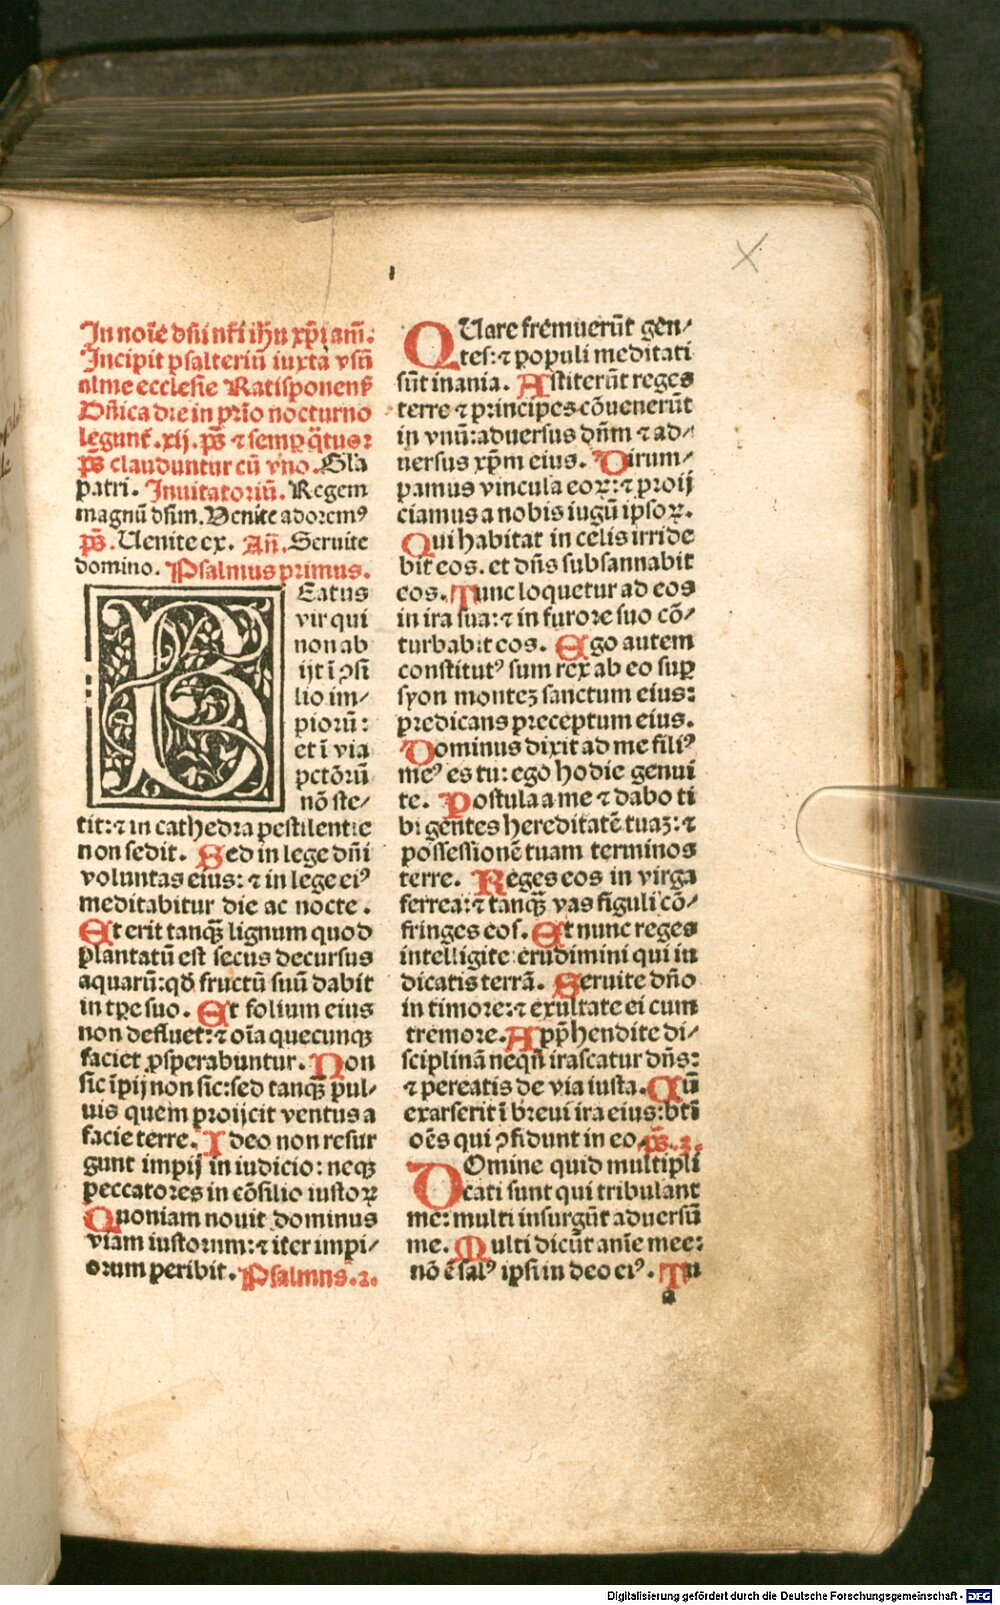 1
In noīe dn̄i nr̄i ih̄u xp̄i am̄.
Incipit psalteriū iuxta vsū
alme ecclesie Ratisponenß
Dn̄ica die in pr̄io nocturno
legunt̄ .xij. ps̄ ⁊ semꝑ q̄tus:
ps̄ clauduntur cū vno. Gl̄a
patri. Inuitatoriū. Regem
magnū dn̄m. Venite adoremꝰ
ps̄. Uenite ex. An̄. Seruite
domino. Psalmus primus.
BEatus
vir qui
non ab
ijt ī ꝯsi
lio im/
piorū:
et ī via
pctōrū
nō ste/
tit: ⁊ in cathedra pestilentie
non sedit. Sed in lege dn̄i
voluntas eius: ⁊ in lege eiꝰ
meditabitur die ac nocte.
Et erit tanqꝫ lignum quod
plantatū est secus decursus
aquarū: qd̄ fructū suū dabit
in tꝑe suo. Et folium eius
non defluet: ⁊ oīa quecunqꝫ
faciet ꝓsperabuntur. Non
sic īpij non sic: sed tanqꝫ pul-
uis quem proijcit ventus a
facie terre. Ideo non resur
gunt impij in iudicio: neqꝫ
peccatores in cōsilio iustoꝝ
Quoniam nouit dominus
viam iustorum: ⁊ iter impi/
orum peribit. Psalmns .2.
QUare fremuerūt gen/
tes: ⁊ populi meditati
sūt inania. Astiterūt reges
terre ⁊ principes cōuenerūt
in vnū: aduersus dn̄m ⁊ ad/
uersus xp̄m eius. Dirum/
pamus vincula eoꝝ: ⁊ proij
ciamus a nobis iugū ipsoꝝ.
Qui habitat in celis irride
bit eos. et dn̄s subsannabit
eos. Tunc loquetur ad eos
in ira sua: ⁊ in furore suo cō/
turbabit eos. Ego autem
constitutꝰ sum rex ab eo suꝑ
syon monteꝫ sanctum eius:
predicans preceptum eius.
Dominus dixit ad me filiꝰ
meꝰ es tu: ego hodie genui
te. Postula a me ⁊ dabo ti
bi gentes hereditatē tuaꝫ: ⁊
possessionē tuam terminos
terre. Reges eos in virga
ferrea: ⁊ tanqꝫ vas figuli cō/
fringes eos. Et nunc reges
intelligite erudimini qui iu
dicatis terrā. Seruite dn̄o
in timore: ⁊ exultate ei cum
tremore. App̄hendite di/
sciplinā neqn̄ irascatur dn̄s:
⁊ pereatis de via iusta. Cū
exarserit ī breui ira eius: bt̄i
oēs qui ꝯfidunt in eo. ps̄ .3.
DOmine quid multipli
cati sunt qui tribulant
me: multi insurgūt aduersū
me. Multi dicūt anīe mee:
nō ē salꝰ ipsi in deo eiꝰ. Tu
a
Digitalisierung gefördert durch die Deutsche Forschungsgemeinschaft - DFG